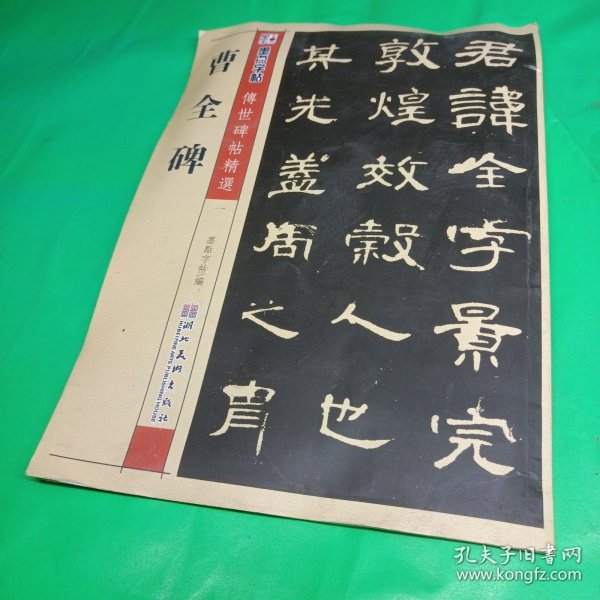 君諱全字景完
敦煌效穀人也
其先蓋周之胄
墨点字帖
傳世碑帖精選
一
曹全碑
墨點字帖 編
湖北美術出版社
HUBEI FINE ARTS PUBLISHING HOUSE
孔夫子旧书网
www.kongfz.com